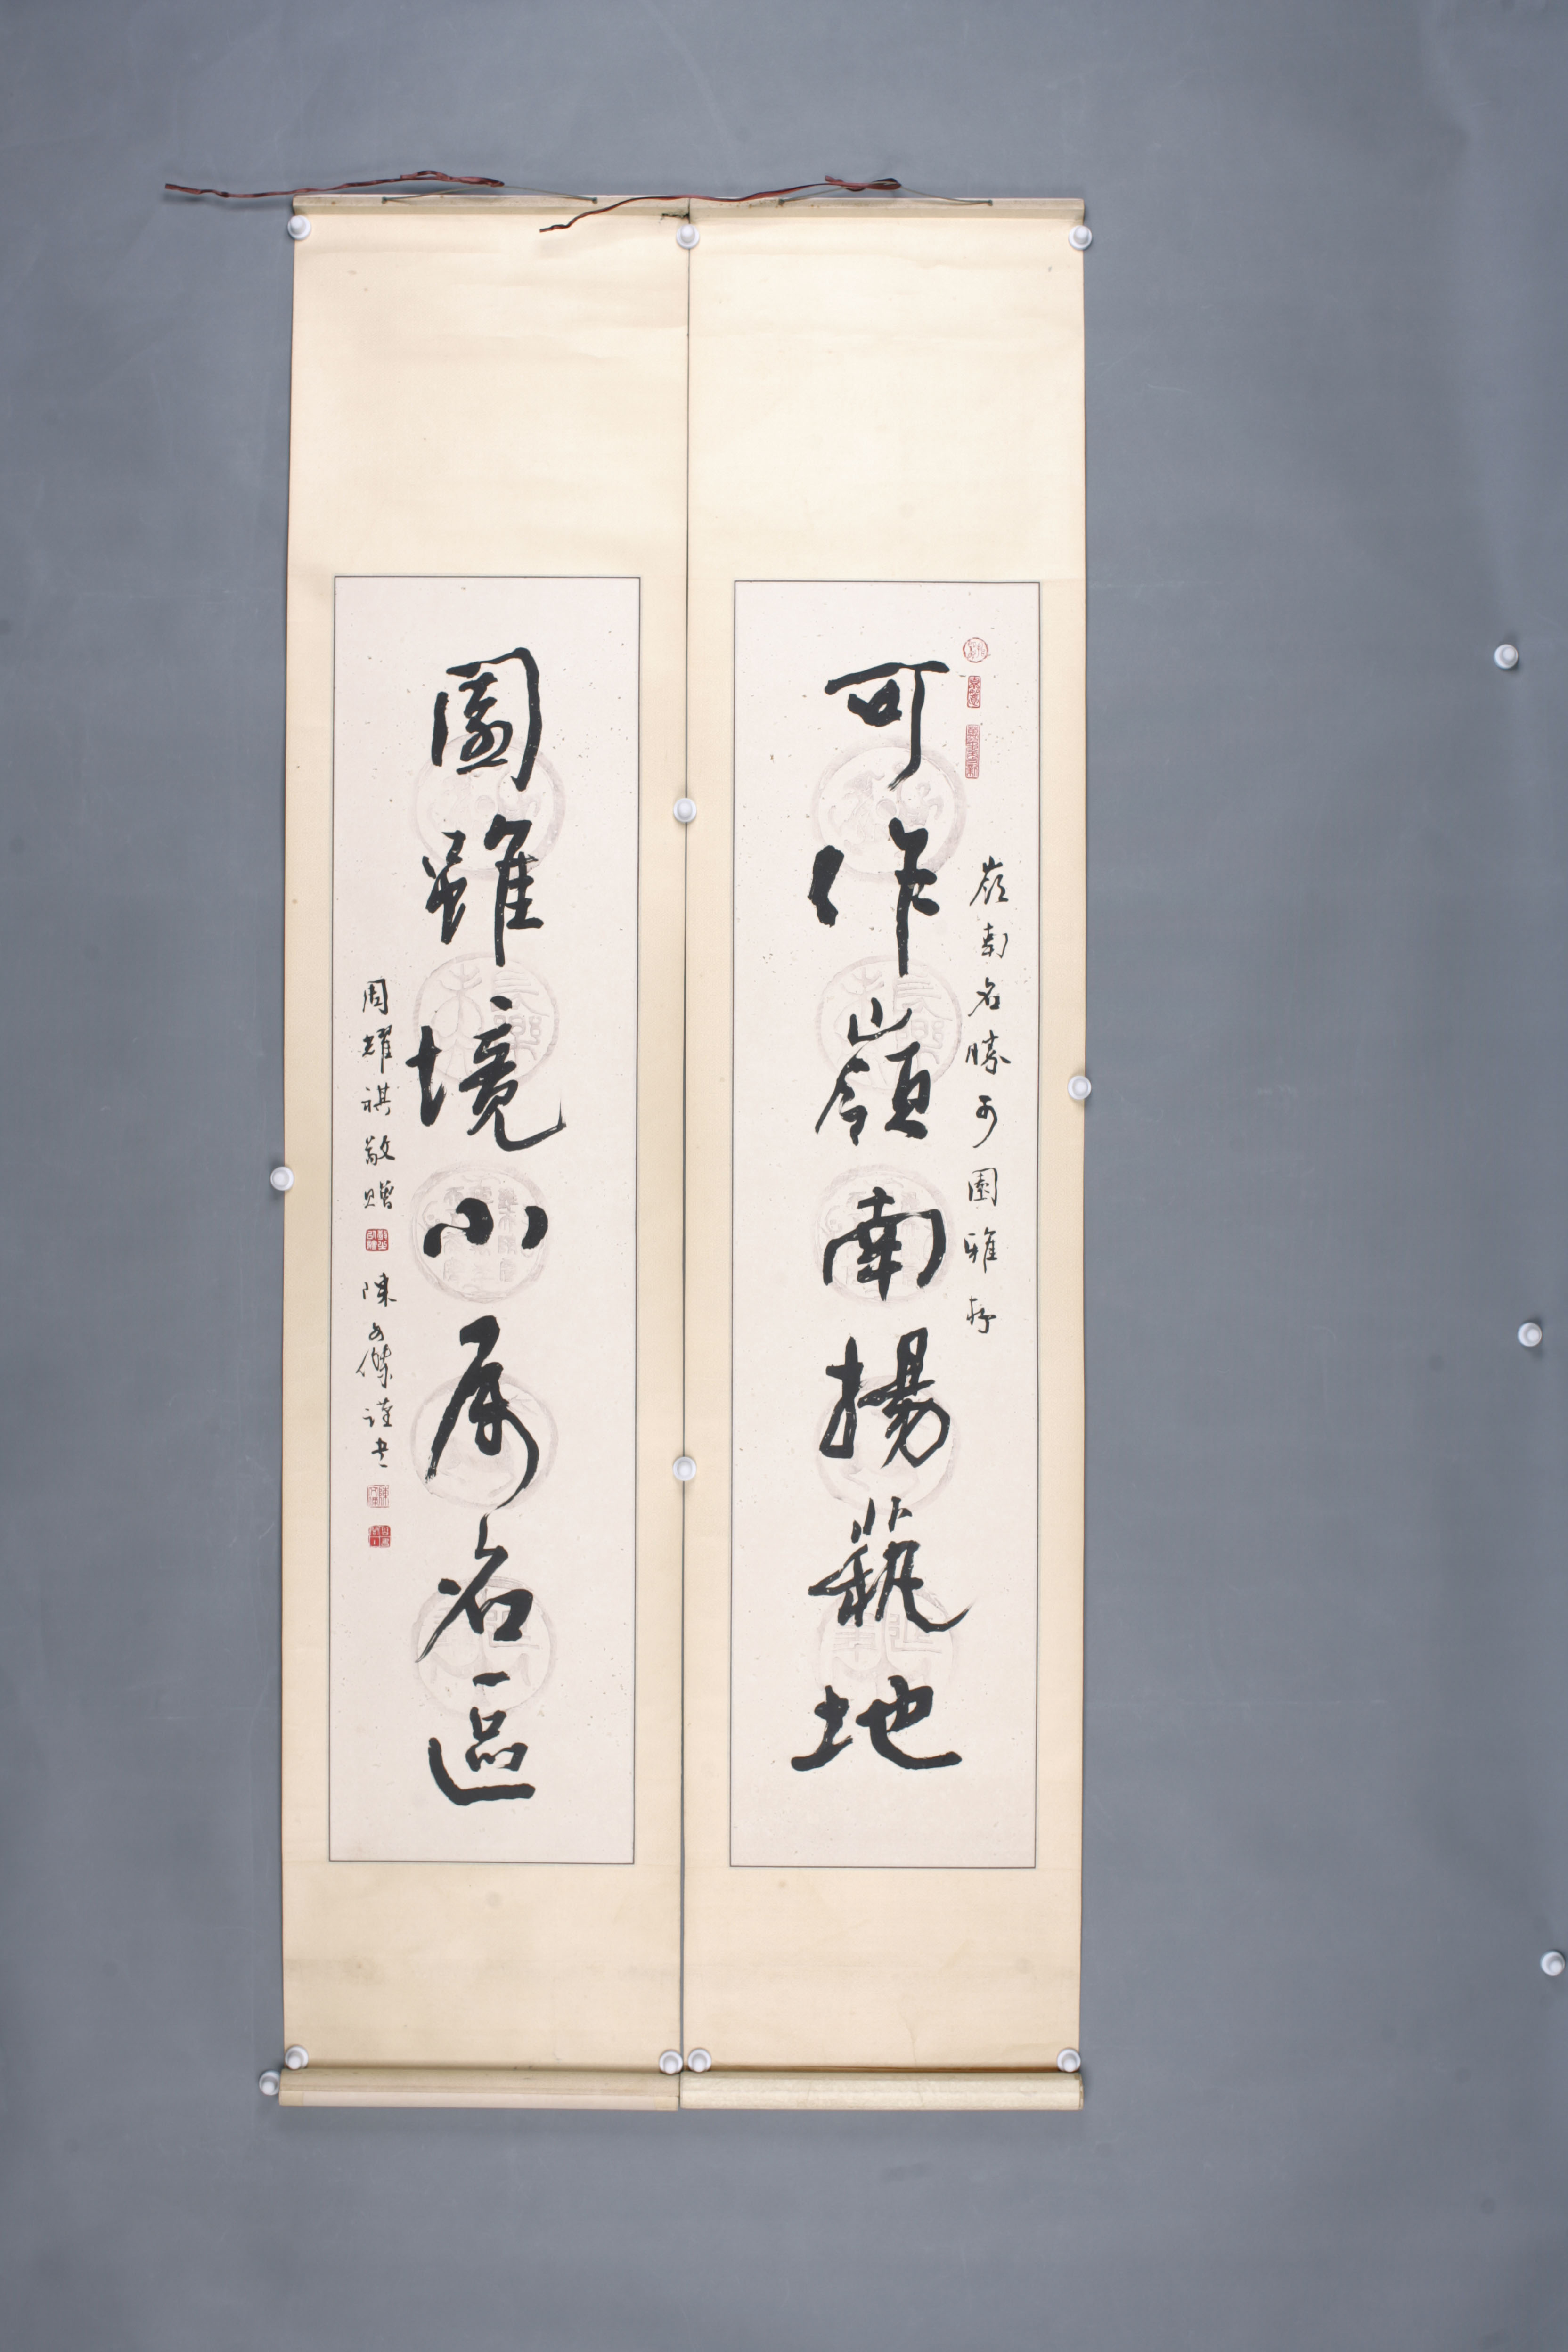 嶺南名勝可園雅存
可作嶺南揚蓺地
園雖境小屬名區
周耀祺敬贈
陳文傑謹书